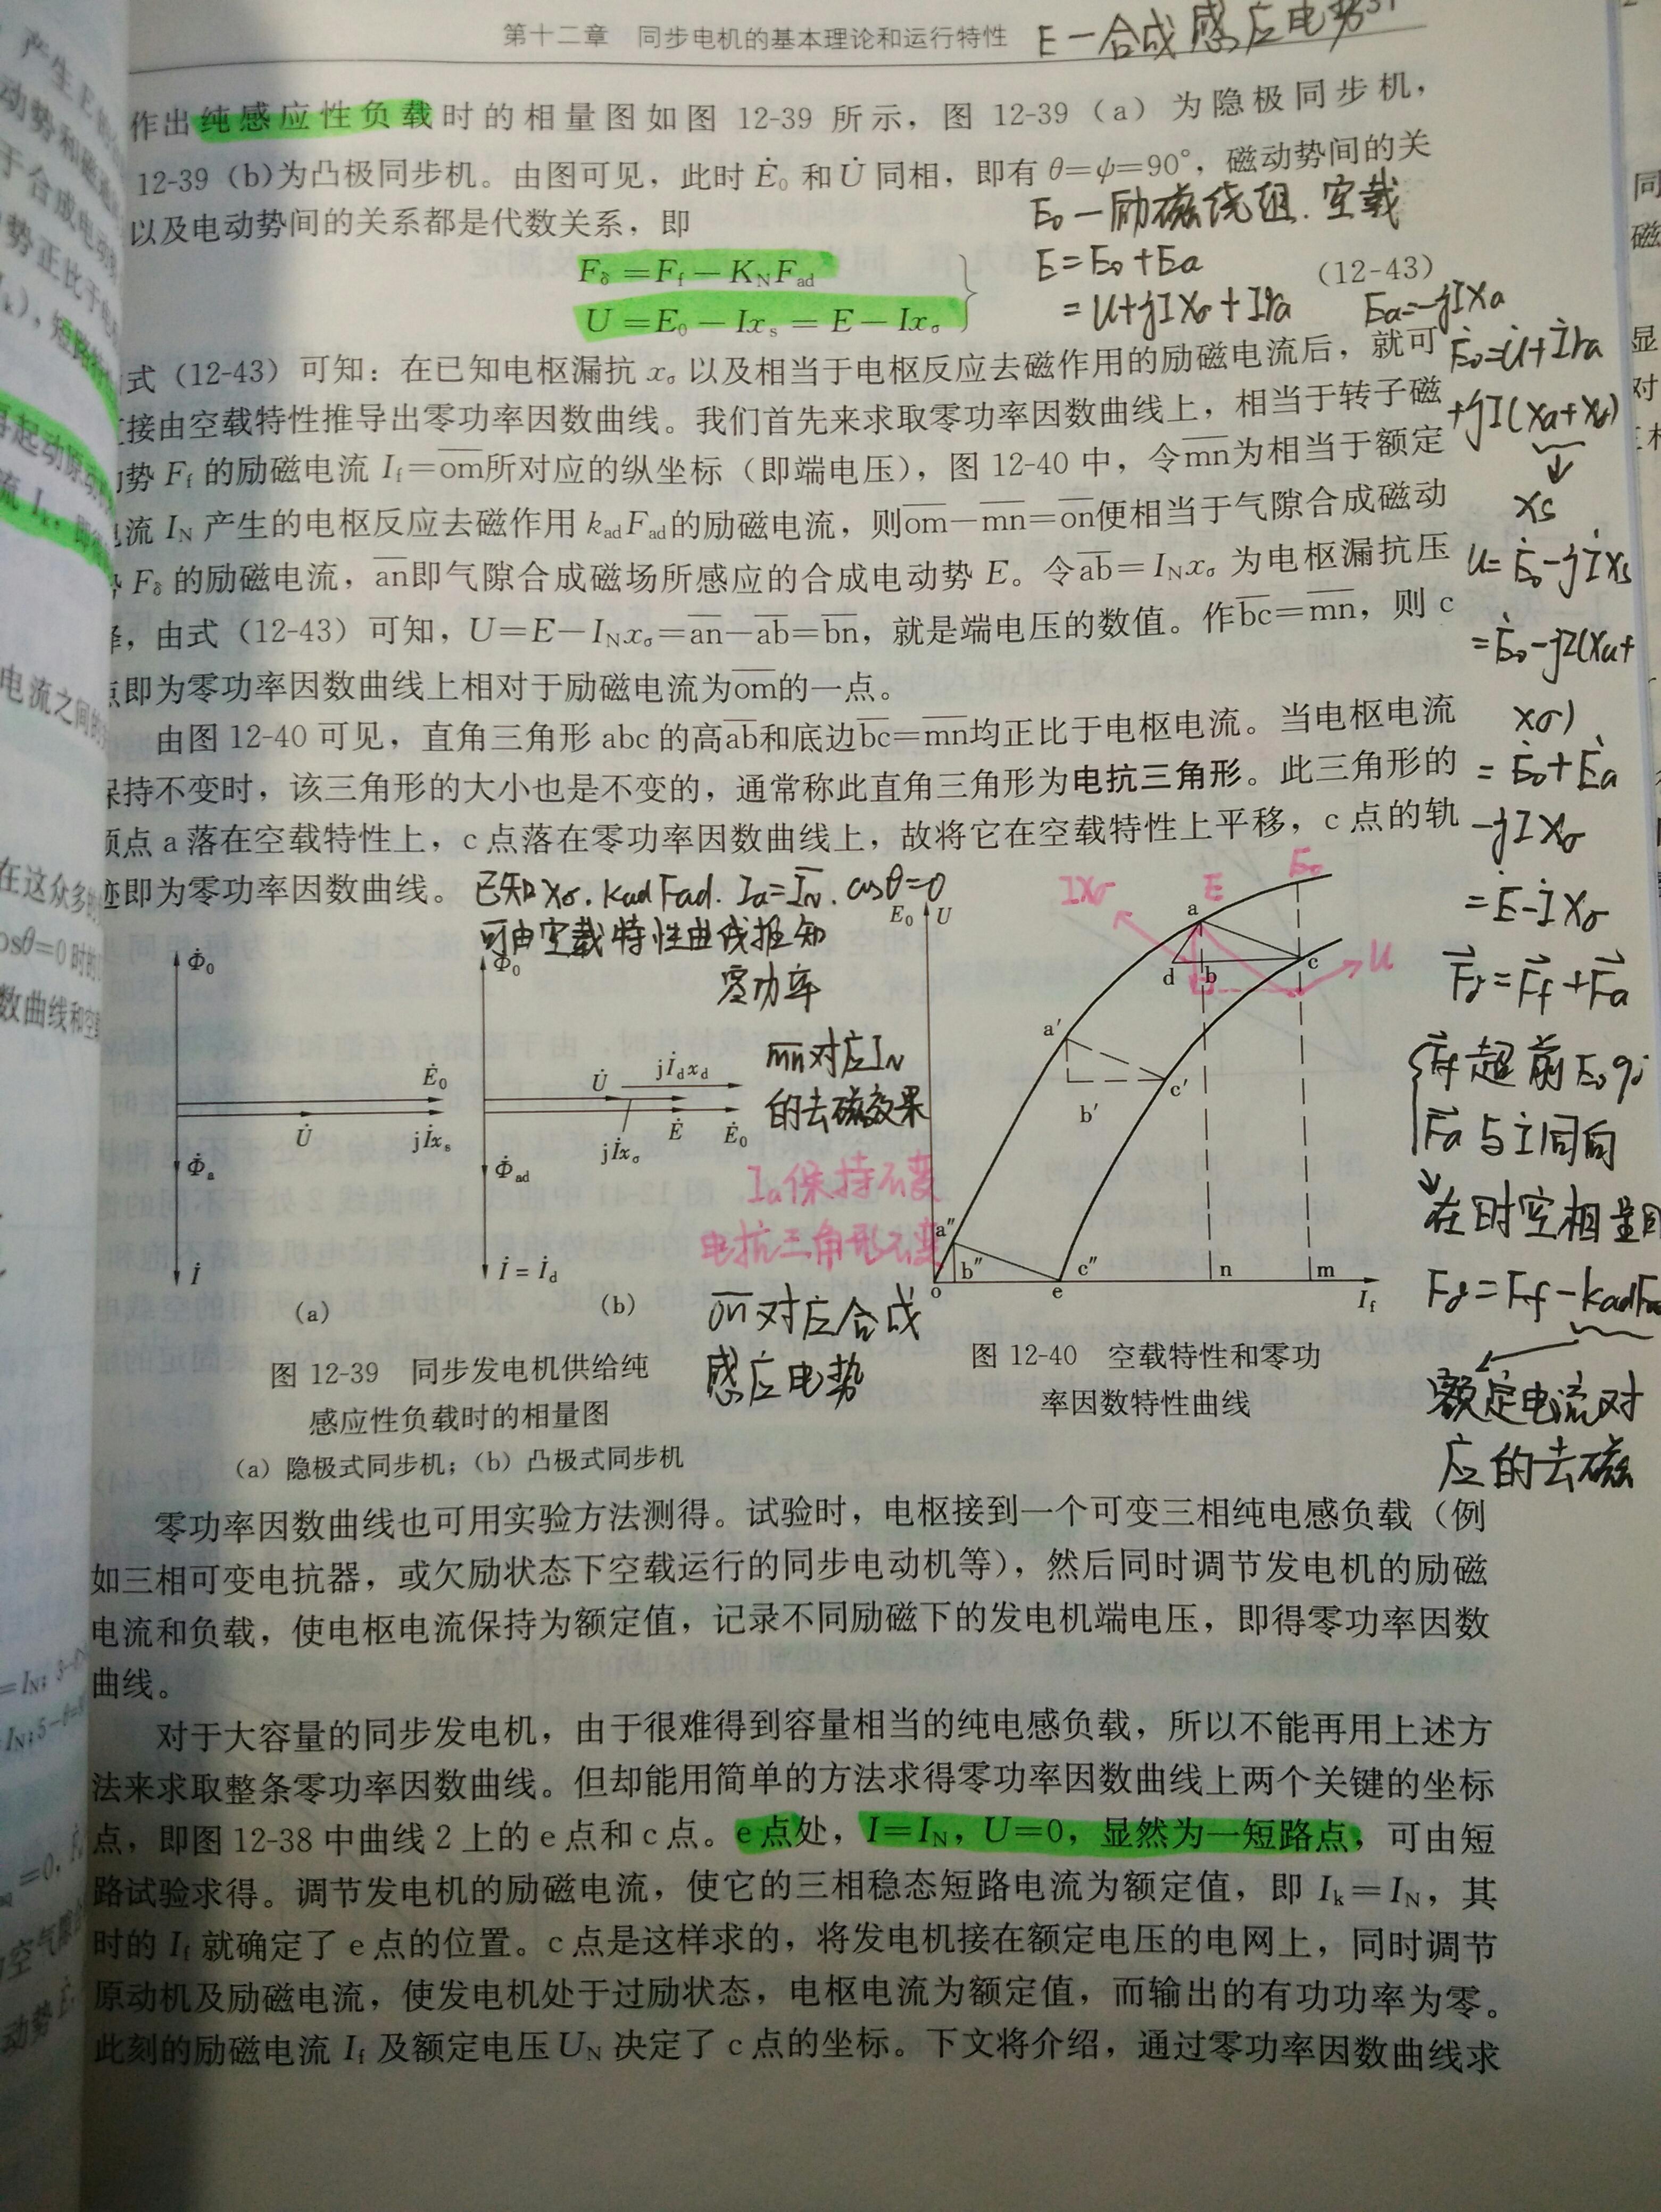 第十二章 同步电机的基本理论和运行特性
E—合成感应电势
作出纯感应性负载时的相量图如图 12-39 所示，图 12-39（a）为隐极同步机，
12-39（b)为凸极同步机。由图可见，此时 Ė₀ 和 U̇ 同相，即有 θ=ψ=90°，磁动势间的关
以及电动势间的关系都是代数关系，即
E₀—励磁绕组.空载
F_δ=F_f−K_N F_ad
U=E₀−Ix_s=E−Ix_σ
(12-43)
E=E₀+Ea
=U+jIXσ+Ira
Ea=-jIXa
式（12-43）可知：在已知电枢漏抗 x_σ 以及相当于电枢反应去磁作用的励磁电流后，就可
接由空载特性推导出零功率因数曲线。我们首先来求取零功率因数曲线上，相当于转子磁
势 F_f 的励磁电流 I_f=om所对应的纵坐标（即端电压），图 12-40 中，令mn为相当于额定
流 I_N 产生的电枢反应去磁作用 k_ad F_ad的励磁电流，则om−mn=on便相当于气隙合成磁动
F_δ 的励磁电流，an即气隙合成磁场所感应的合成电动势 E。令ab=I_N x_σ 为电枢漏抗压
，由式（12-43）可知，U=E−I_N x_σ=an−ab=bn，就是端电压的数值。作bc=mn，则 c
点即为零功率因数曲线上相对于励磁电流为om的一点。
由图 12-40 可见，直角三角形 abc 的高ab和底边bc=mn均正比于电枢电流。当电枢电流
保持不变时，该三角形的大小也是不变的，通常称此直角三角形为电抗三角形。此三角形的
顶点 a 落在空载特性上，c 点落在零功率因数曲线上，故将它在空载特性上平移，c 点的轨
迹即为零功率因数曲线。
Ė₀=U̇+İra
+jI(Xa+Xσ)
↓
Xs
U=Ė₀-jİXs
=Ė₀-jI(Xa+
Xσ)
=Ė₀+Ėa
-jIXσ
=Ė-İXσ
已知Xσ.kadFad.Ia=IN.cosθ=0
可由空载特性曲线推知
零功率
mn对应IN
的去磁效果
Ia保持不变
电抗三角形不变
on对应合成
感应电势
Φ̇₀
Ė₀
U̇
jİx_s
Φ̇_a
İ
(a)
Φ̇₀
U̇
jİ_d x_d
jİx_σ
Ė
Ė₀
Φ̇_ad
İ=İ_d
(b)
图 12-39 同步发电机供给纯
感应性负载时的相量图
(a) 隐极式同步机；(b) 凸极式同步机
E₀
U
IXσ
E
E₀
U
a
d
b
c
a′
b′
c′
a″
b″
c″
o
e
n
m
I_f
图 12-40 空载特性和零功
率因数特性曲线
Fδ=Ff+Fa
Ff超前E₀90
Fa与İ同向
在时空相量图
Fδ=Ff-kadFad
额定电流对
应的去磁
零功率因数曲线也可用实验方法测得。试验时，电枢接到一个可变三相纯电感负载（例
如三相可变电抗器，或欠励状态下空载运行的同步电动机等），然后同时调节发电机的励磁
电流和负载，使电枢电流保持为额定值，记录不同励磁下的发电机端电压，即得零功率因数
曲线。
对于大容量的同步发电机，由于很难得到容量相当的纯电感负载，所以不能再用上述方
法来求取整条零功率因数曲线。但却能用简单的方法求得零功率因数曲线上两个关键的坐标
点，即图 12-38 中曲线 2 上的 e 点和 c 点。e 点处，I=I_N，U=0，显然为一短路点，可由短
路试验求得。调节发电机的励磁电流，使它的三相稳态短路电流为额定值，即 I_k=I_N，其
时的 I_f 就确定了 e 点的位置。c 点是这样求的，将发电机接在额定电压的电网上，同时调节
原动机及励磁电流，使发电机处于过励状态，电枢电流为额定值，而输出的有功功率为零。
此刻的励磁电流 I_f 及额定电压 U_N 决定了 c 点的坐标。下文将介绍，通过零功率因数曲线求